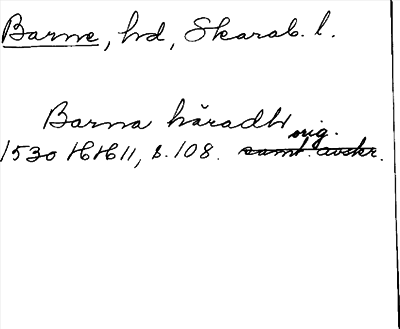 Barne, hd, Skarab. l.
Barna häradh
orig.
1530 HH 11, s. 108. samt. avskr.